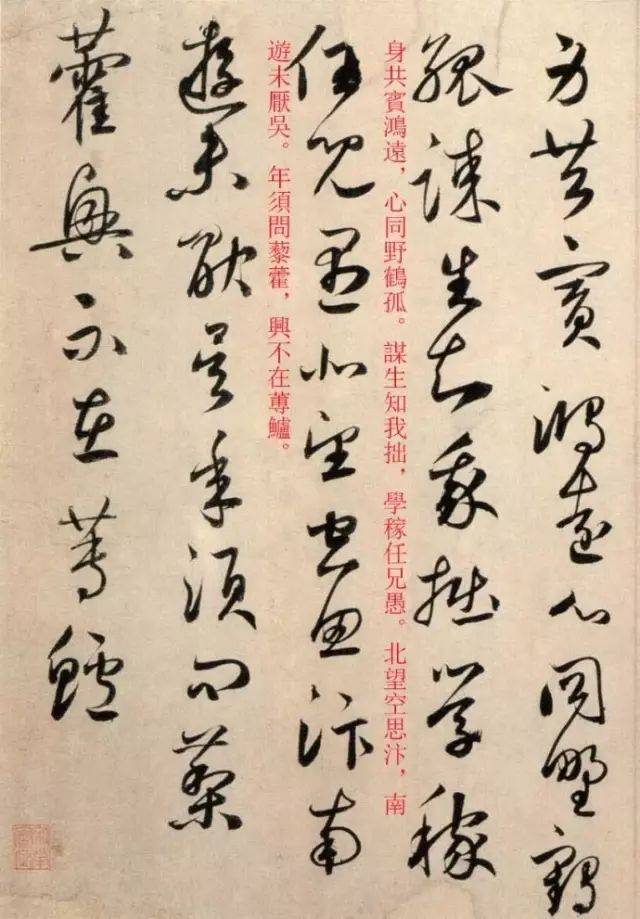 身共賓鴻遠心同野鶴
孤謀生知我拙學稼
任兄愚北望空思汴南
遊未厭吳年須問藜
藿興不在蓴鱸
身共賓鴻遠，心同野鶴孤。謀生知我拙，學稼任兄愚。北望空思汴，南
遊未厭吳。年須問藜藿，興不在蓴鱸。